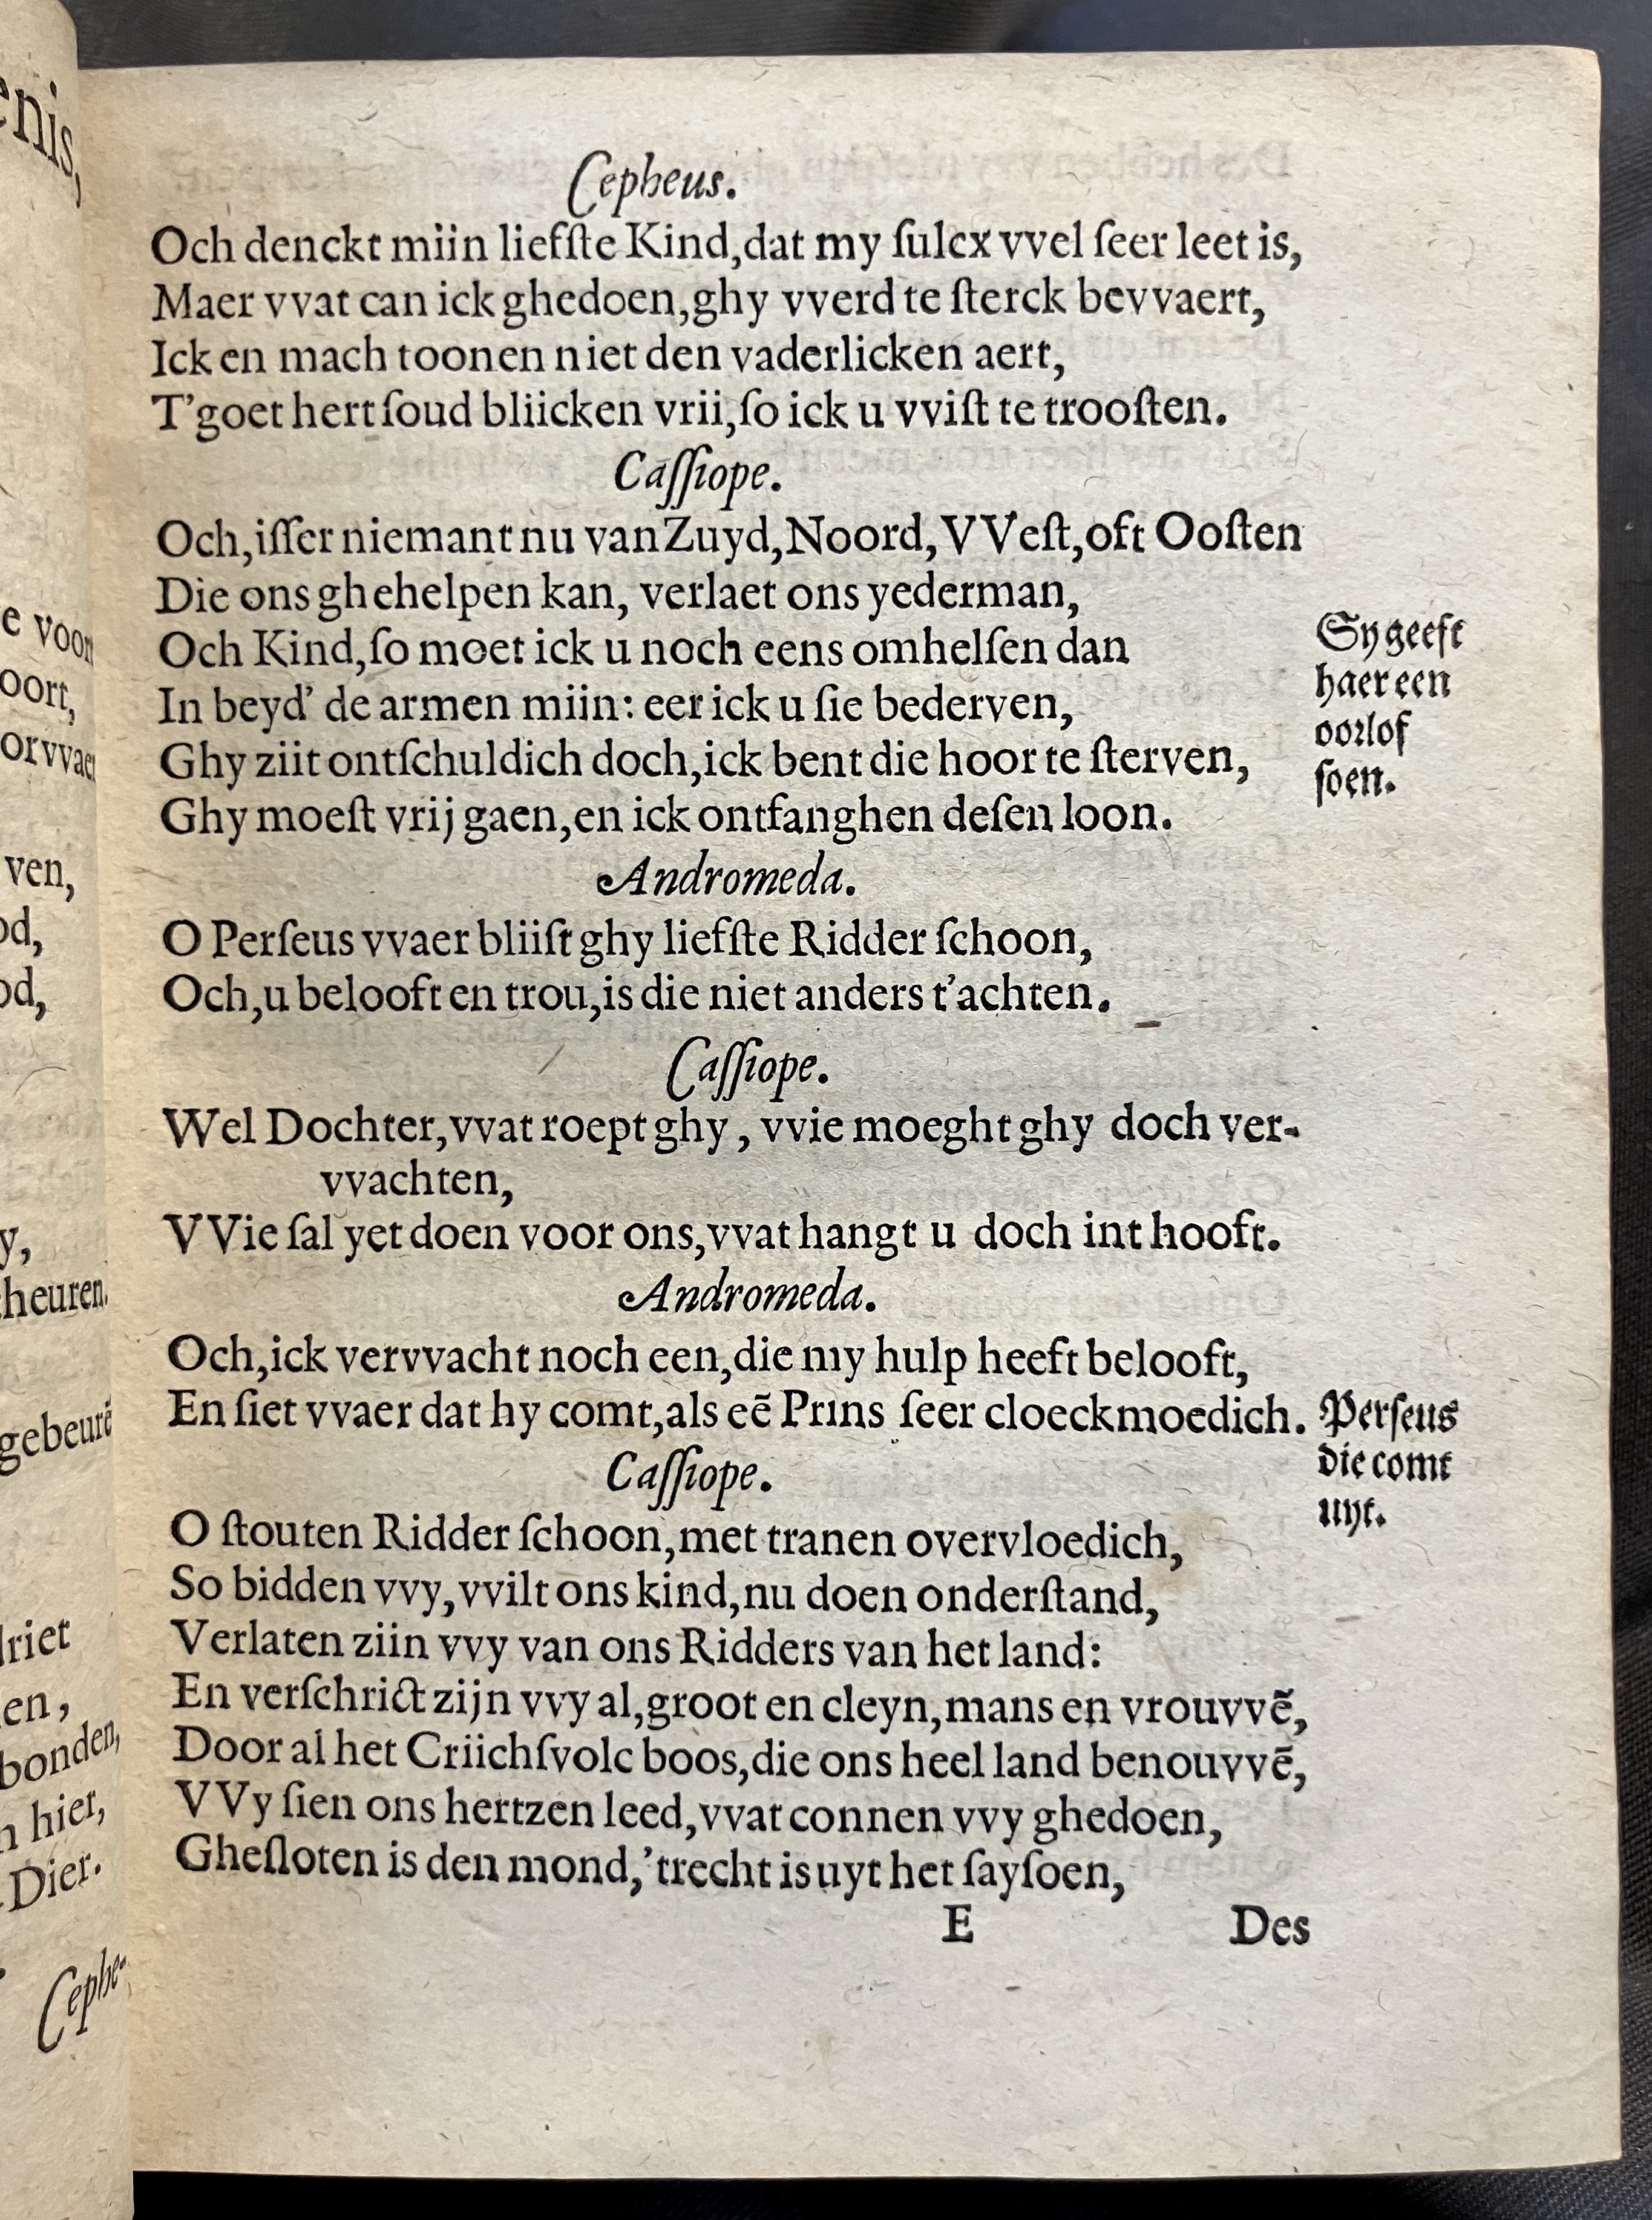 Cepheus.
Och denckt miin liefſte Kind,dat my ſulcx vvel ſeer leet is,
Maer vvat can ick ghedoen,ghy vverd te ſterck bevvaert,
Ick en mach toonen niet den vaderlicken aert,
T'goet hert ſoud bliicken vrii,ſo ick u vviſt te trooſten.
Caſſiope.
Och,iſſer niemant nu van Zuyd,Noord,VVeſt,oft Ooſten
Die ons ghehelpen kan, verlaet ons yederman,
Och Kind,ſo moet ick u noch eens omhelſen dan
In beyd' de armen miin: eer ick u ſie bederven,
Ghy ziit ontſchuldich doch,ick bent die hoor te ſterven,
Ghy moeſt vrij gaen,en ick ontfanghen deſen loon.
Sy geeft
haer een
oorlof
ſoen.
Andromeda.
O Perſeus vvaer bliiſt ghy liefſte Ridder ſchoon,
Och,u belooft en trou,is die niet anders t'achten.
Caſſiope.
Wel Dochter,vvat roept ghy, vvie moeght ghy doch ver-
vvachten,
VVie ſal yet doen voor ons,vvat hangt u doch int hooft.
Andromeda.
Och,ick vervvacht noch een,die my hulp heeft belooft,
En ſiet vvaer dat hy comt,als eẽ Prins ſeer cloeckmoedich.
Perſeus
die comt
uyt.
Caſſiope.
O ſtouten Ridder ſchoon,met tranen overvloedich,
So bidden vvy,vvilt ons kind,nu doen onderſtand,
Verlaten ziin vvy van ons Ridders van het land:
En verſchrict zijn vvy al,groot en cleyn,mans en vrouvvẽ,
Door al het Criichſvolc boos,die ons heel land benouvvẽ,
VVy ſien ons hertzen leed,vvat connen vvy ghedoen,
Gheſloten is den mond,'trecht is uyt het ſayſoen,
E
Des